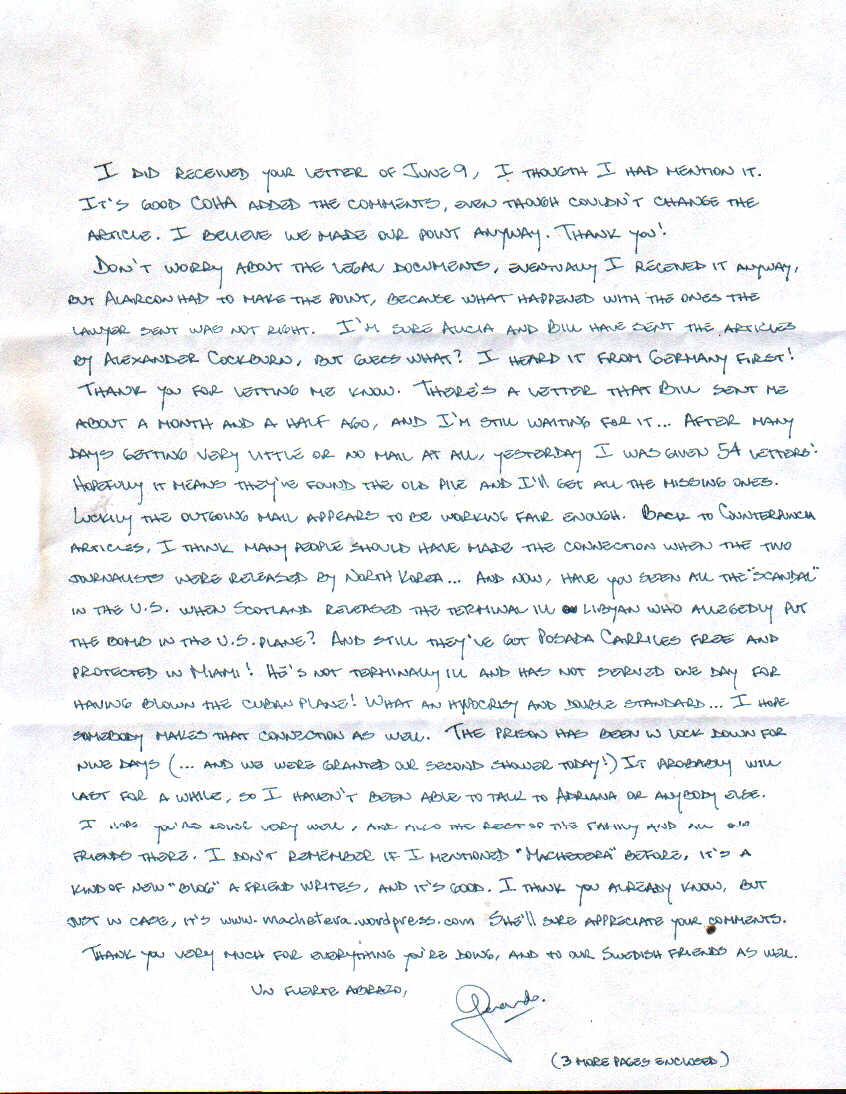 I DID RECEIVED YOUR LETTER OF JUNE 9, I THOUGTH I HAD MENTION IT.
IT'S GOOD COHA ADDED THE COMMENTS, EVEN THOUGH COULDN'T CHANGE THE
ARTICLE. I BELIEVE WE MADE OUR POINT ANYWAY. THANK YOU!
DON'T WORRY ABOUT THE LEGAL DOCUMENTS, EVENTUALLY I RECEIVED IT ANYWAY,
BUT ALARCON HAD TO MAKE THE POINT, BECAUSE WHAT HAPPENED WITH THE ONES THE
LAWYER SENT WAS NOT RIGHT. I'M SURE ALICIA AND BILL HAVE SENT THE ARTICLES
BY ALEXANDER COCKBURN, BUT GUESS WHAT? I HEARD IT FROM GERMANY FIRST!
THANK YOU FOR LETTING ME KNOW. THERE'S A LETTER THAT BILL SENT ME
ABOUT A MONTH AND A HALF AGO, AND I'M STILL WAITING FOR IT... AFTER MANY
DAYS GETTING VERY LITTLE OR NO MAIL AT ALL, YESTERDAY I WAS GIVEN 54 LETTERS!
HOPEFULLY IT MEANS THEY'VE FOUND THE OLD PILE AND I'll GET ALL THE MISSING ONES.
LUCKILY THE OUTGOING MAIL APPEARS TO BE WORKING FAIR ENOUGH. BACK TO COUNTERPUNCH
ARTICLES, I THINK MANY PEOPLE SHOULD HAVE MADE THE CONNECTION WHEN THE TWO
JOURNALISTS WERE RELEASED BY NORTH KOREA... AND NOW, HAVE YOU SEEN ALL THE "SCANDAL"
IN THE U.S. WHEN SCOTLAND RELEASED THE TERMINAL ILL LIBYAN WHO ALLEGEDLY PUT
THE BOMB IN THE U.S. PLANE? AND STILL THEY'VE GOT POSADA CARRILES FREE AND
PROTECTED IN MIAMI! HE'S NOT TERMINALLY ILL AND HAS NOT SERVED ONE DAY FOR
HAVING BLOWN THE CUBAN PLANE! WHAT AN HYPOCRISY AND DOUBLE STANDARD... I HOPE
SOMEBODY MAKES THAT CONNECTION AS WELL. THE PRISON HAS BEEN IN LOCK DOWN FOR
NINE DAYS (... AND WE WERE GRANTED OUR SECOND SHOWER TODAY!) IT PROBABLY WILL
LAST FOR A WHILE, SO I HAVEN'T BEEN ABLE TO TALK TO ADRIANA OR ANYBODY ELSE.
I HOPE YOU'RE DOING VERY WELL, AND ALSO THE REST OF THE FAMILY AND ALL OUR
FRIENDS THERE. I DON'T REMEMBER IF I MENTIONED "MACHETERA" BEFORE, IT'S A
KIND OF NEW "BLOG" A FRIEND WRITES, AND IT'S GOOD. I THINK YOU ALREADY KNOW, BUT
JUST IN CASE, IT'S www.machetera.wordpress.com SHE'LL SURE APPRECIATE YOUR COMMENTS.
THANK YOU VERY MUCH FOR EVERYTHING YOU'RE DOING, AND TO OUR SWEDISH FRIENDS AS WELL.
UN FUERTE ABRAZO,
Gerardo.
(3 MORE PAGES ENCLOSED)